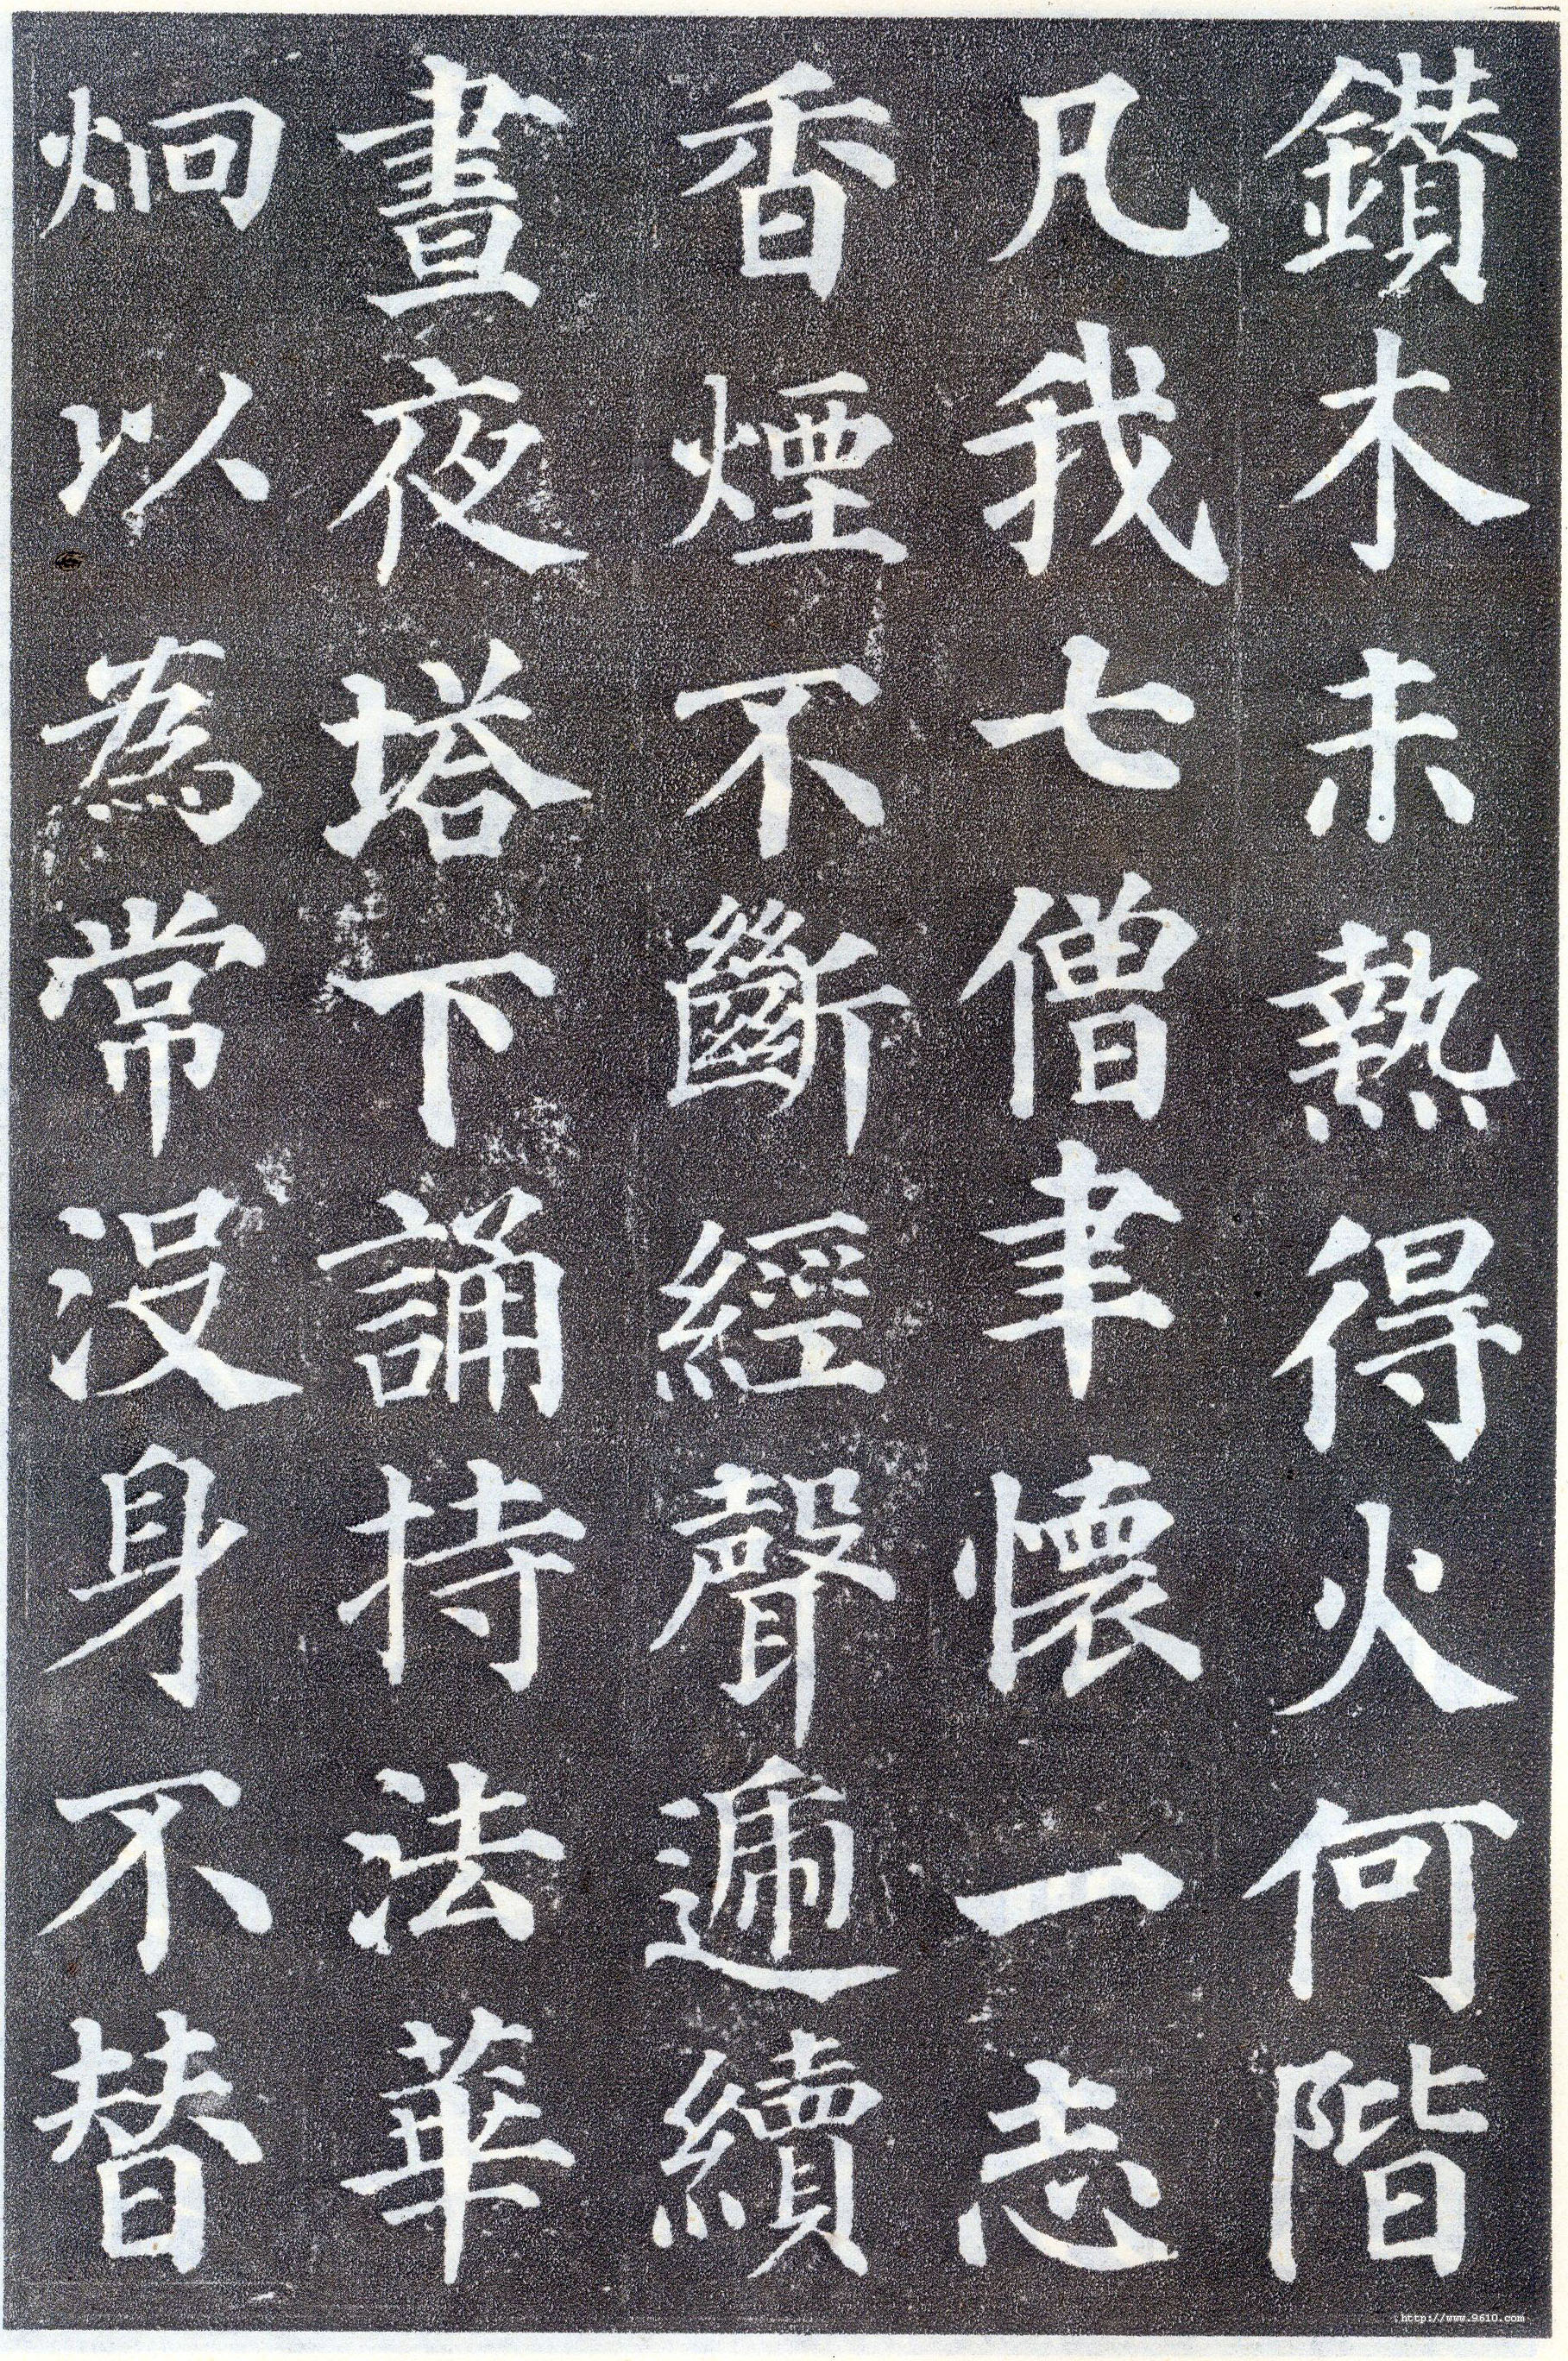 鑚木未熱得火何階
凡我七僧聿懷一志
香煙不斷經聲遞續
晝夜塔下誦持法華
炯以為常没身不替
http://www.9610.com